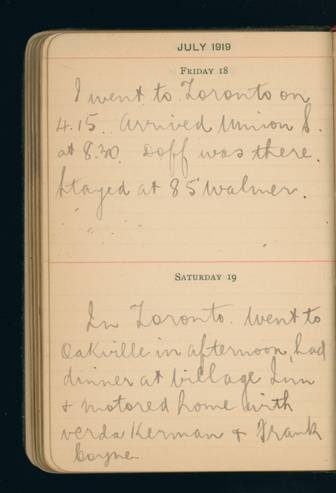 JULY 1919
FRIDAY 18
I went to Toronto on
4.15. Arrived Union S.
at 8.30. Doff was there.
Stayed at 85 Walmer.
SATURDAY 19
In Toronto. Went to
Oakville in afternoon, had
dinner at Village Inn
& motored home with
verda Kerman & Frank
Coyne